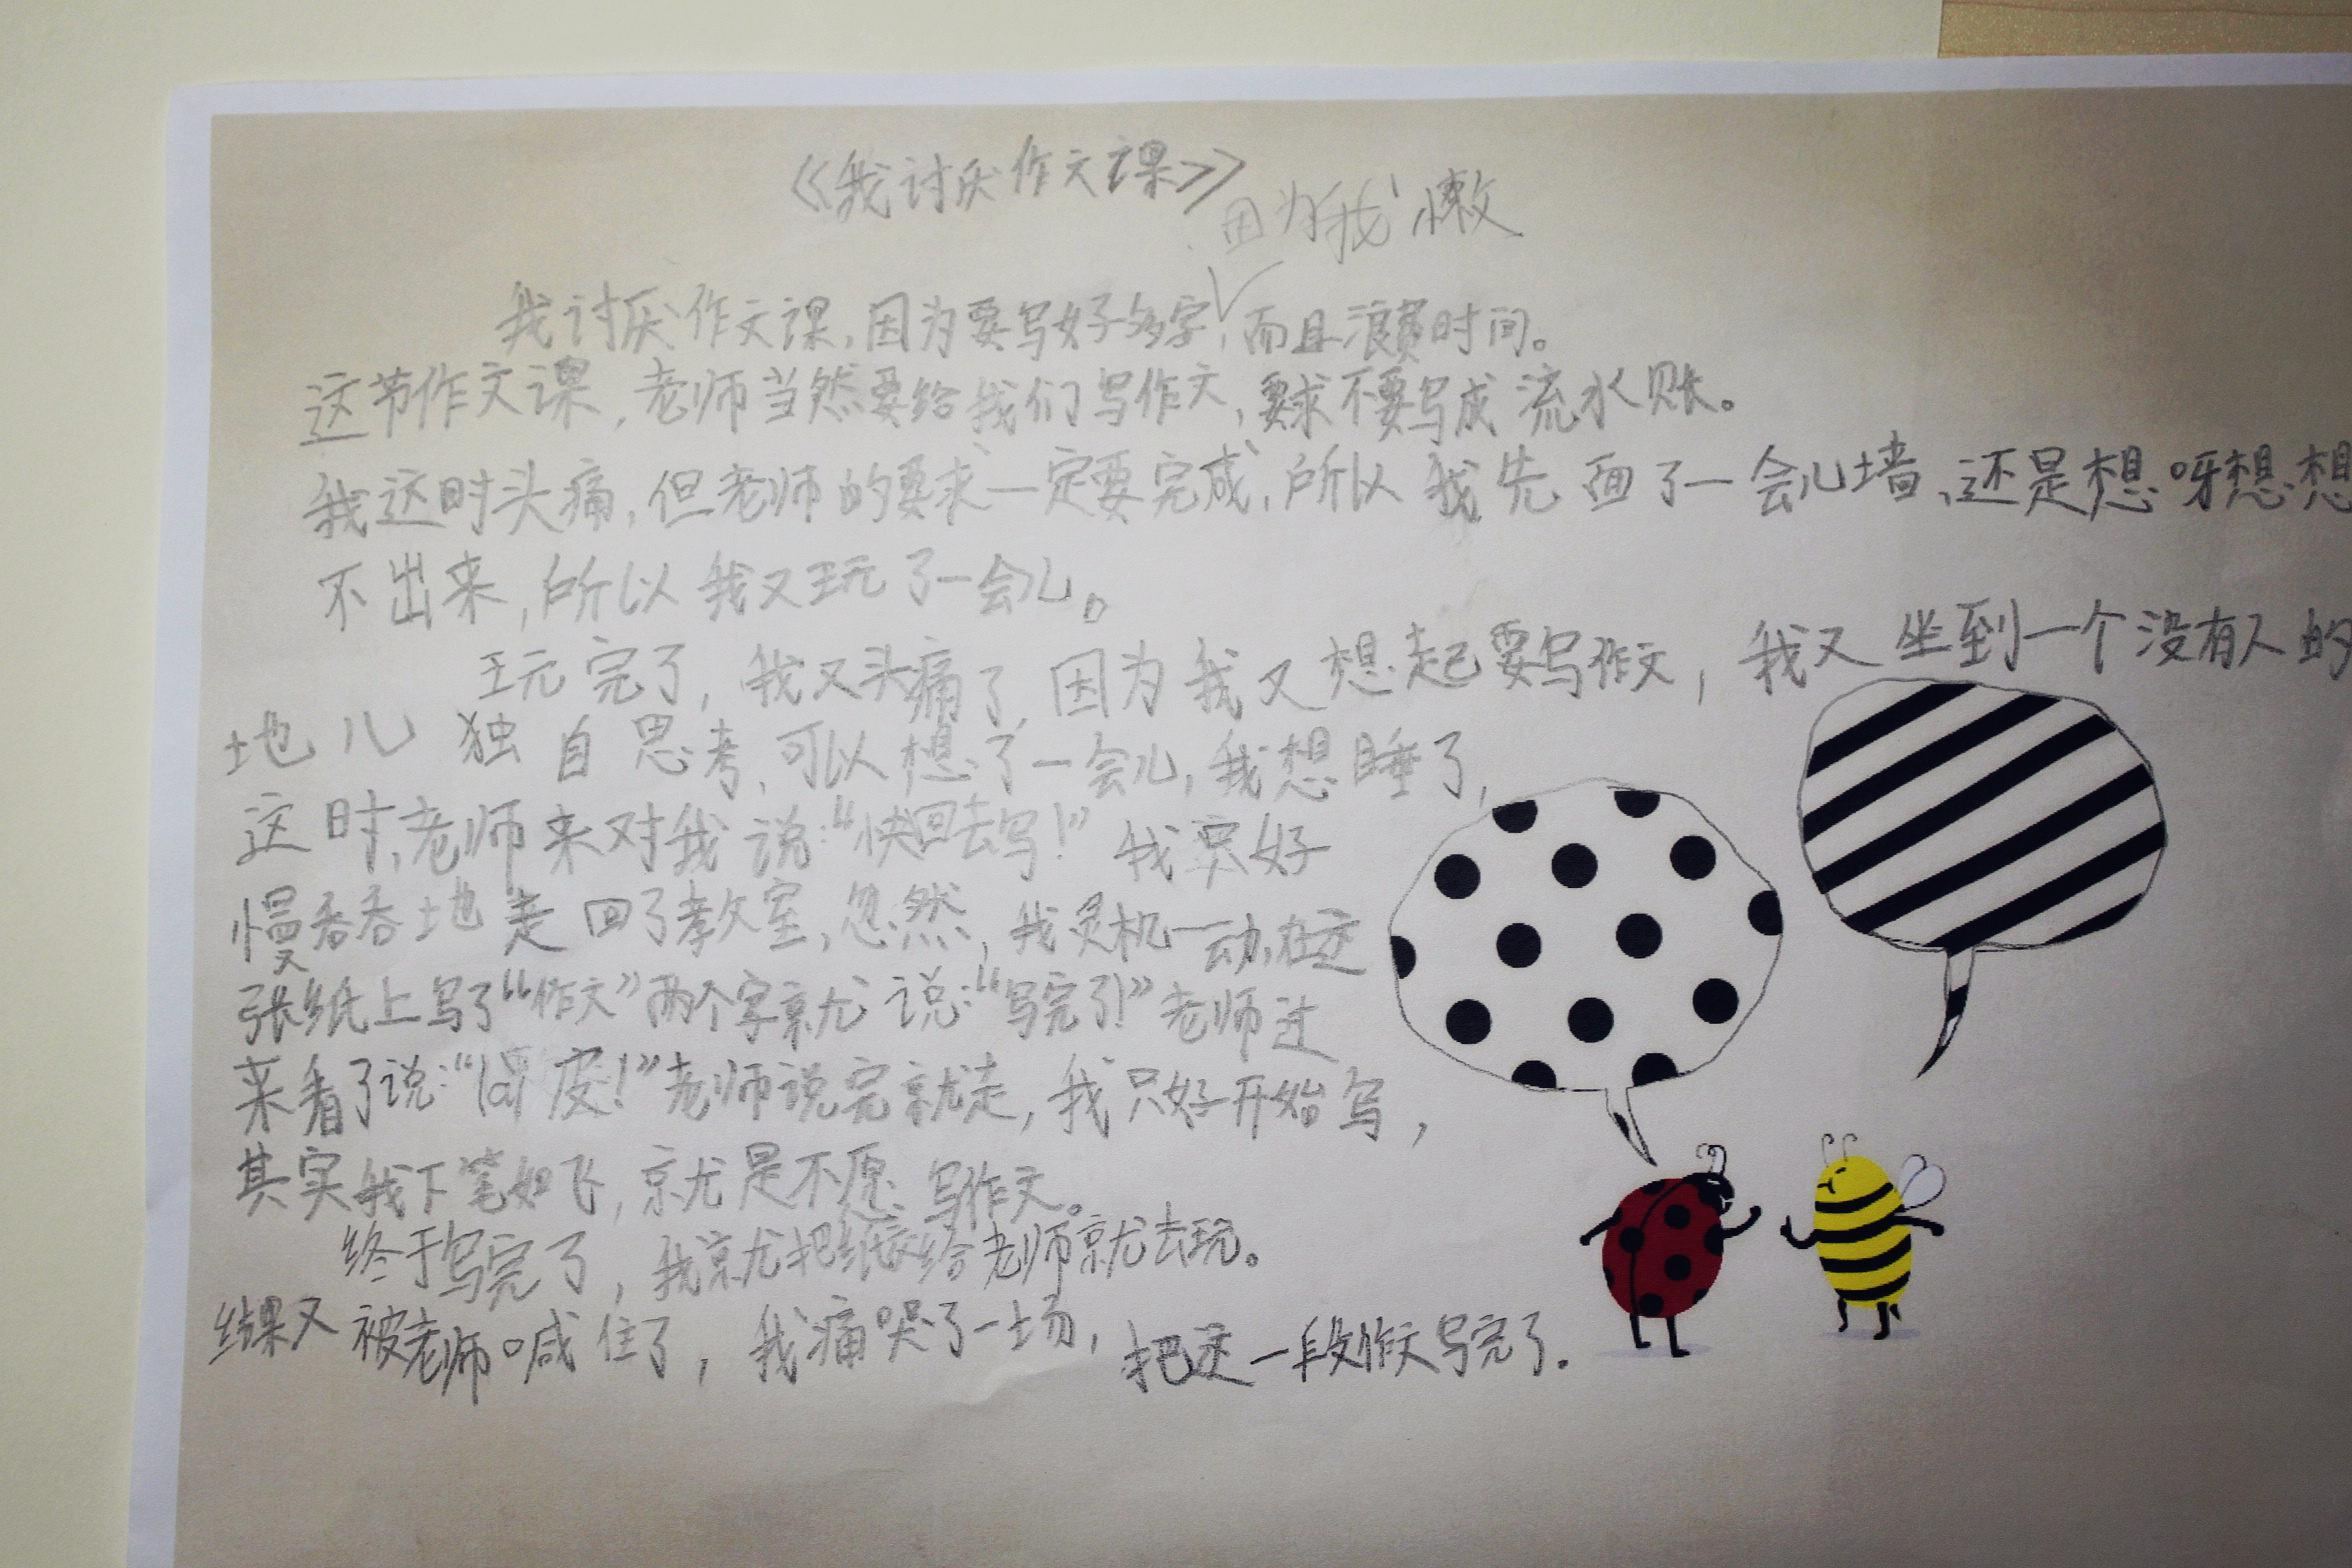 《我讨厌作文课》
因为我懒
我讨厌作文课,因为要写好多字,而且浪费时间。
这节作文课,老师当然要给我们写作文,要求不要写成流水账。
我这时头痛,但老师的要求一定要完成,所以我先面了一会儿墙,还是想呀想想
不出来,所以我又玩了一会儿。
玩完了,我又头痛了,因为我又想起要写作文,我又坐到一个没有人的
地儿独自思考,可以想了一会儿,我想睡了,
这时,老师来对我说:“快回去写!”我只好
慢吞吞地走回了教室,忽然,我灵机一动,在这
张纸上写了“作文”两个字就说:“写完了!”老师过
来看了说:“调皮!”老师说完就走,我只好开始写,
其实我下笔如飞,就是不愿写作文。
终于写完了,我就把纸交给老师就去玩。
结果又被老师喊住了,我痛哭了一场,把这一段作文写完了.